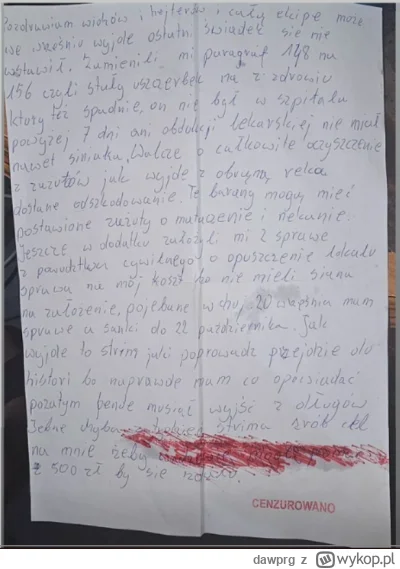 Pozdrawiam widzów i hejterów i całą ekipę może
we wrześniu wyjde ostatni świadek się nie
wstawił, Zamienili mi paragraf 148 na
156 czyli stały uszczerbek na z zdrowiu
ktury też spadnie, on nie był w szpitalu
powyżej 7 dni ani obdukcji lekarskiej nie miał
nawet siniaka, Walcze o całkowite oczyszczenie
z zarzutów jak wyjdę z obroną
dostane odszkodowanie. Te barany mogą mieć
postawione zarzuty o mataczenie i nekanie.
Jeszcze w dodatku założyli mi 2 sprawe
z powództwa cywilnego o opuszczenie lokalu
sprawa na mój koszt bo nie mieli siana
na założenie, pojebane wchuj, 20 wrzesnia mam
sprawe a sanki do 22 października. Jak
wyjde to strim jaki poprowadze przejdzie do
histori bo naprawde mam co opowiadać
pozatym bende musiał wyjść z długów
strima zrób cel
na mnie żeby
z 500 zł by się
CENZUROWANO
dawprg z wykop.pl